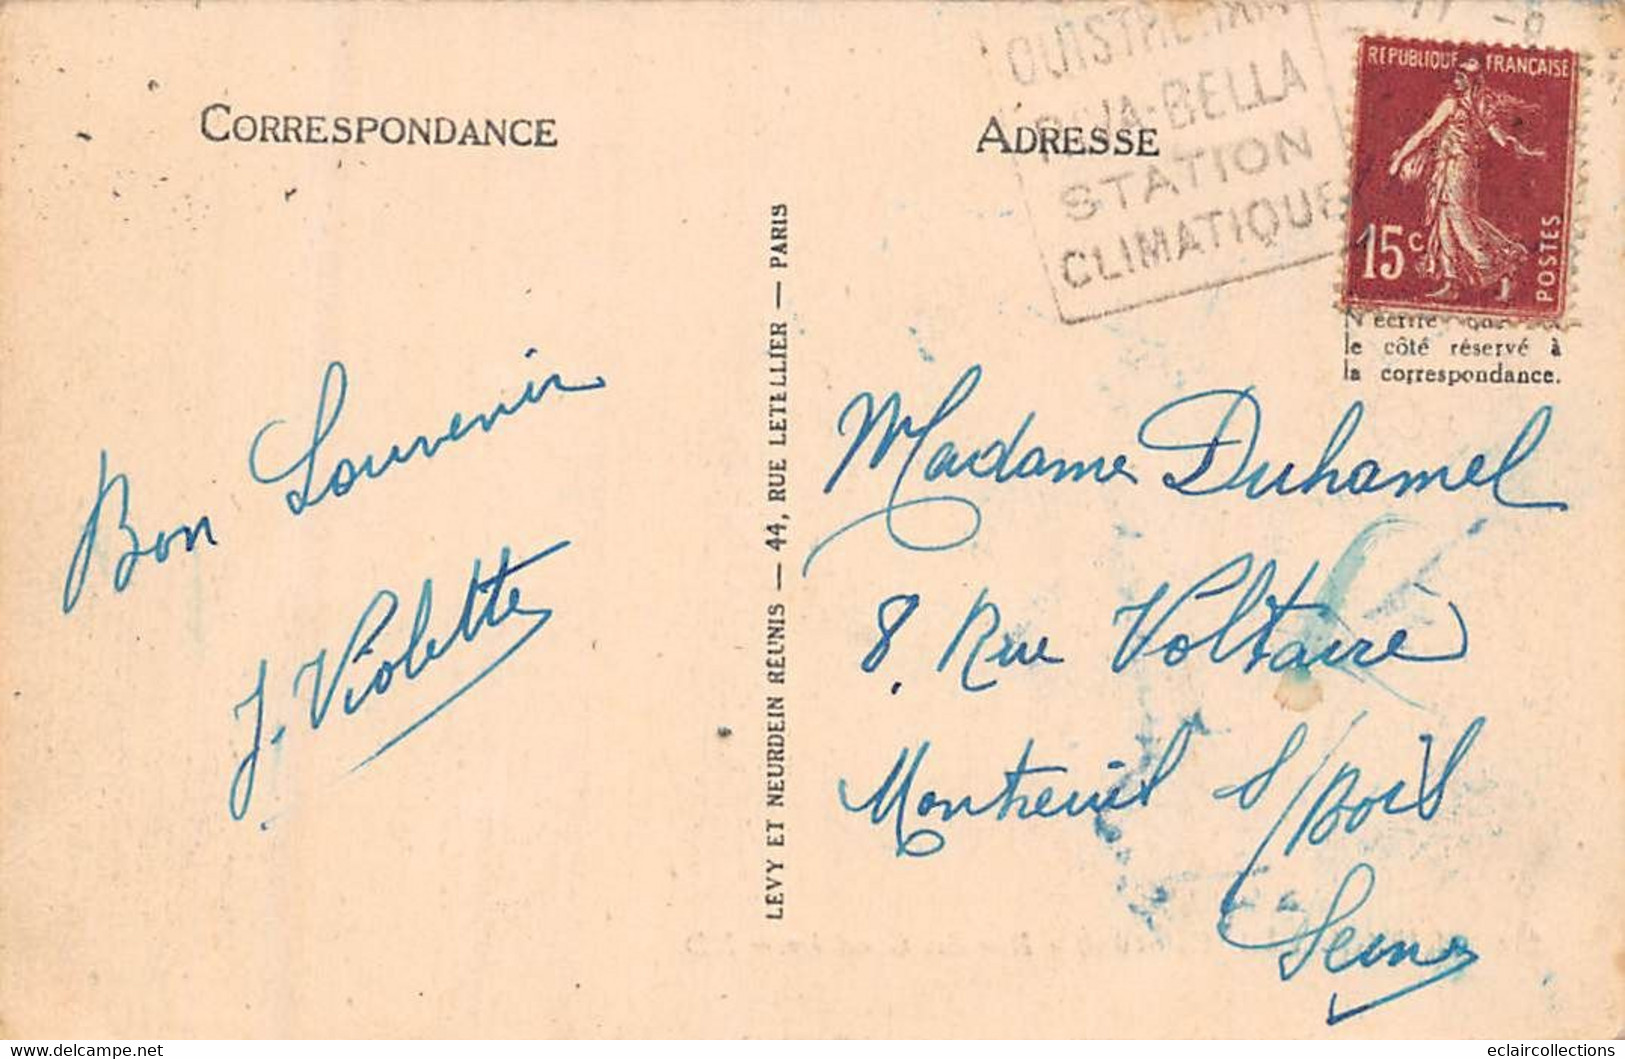 CORRESPONDANCE
Bon Souvenir
J. Violette
LEVY ET NEURDEIN RÉUNIS — 44, RUE LETELLIER — PARIS
ADRESSE
OUISTREHAM
RIVA-BELLA
STATION
CLIMATIQUE
RÉPUBLIQUE FRANÇAISE
15c
POSTES
N'écrire que
le côté réservé à
la correspondance.
Madame Duhamel
8. Rue Voltaire
Montreuil s/Bois
Seine
www.delcampe.net
eclaircollections